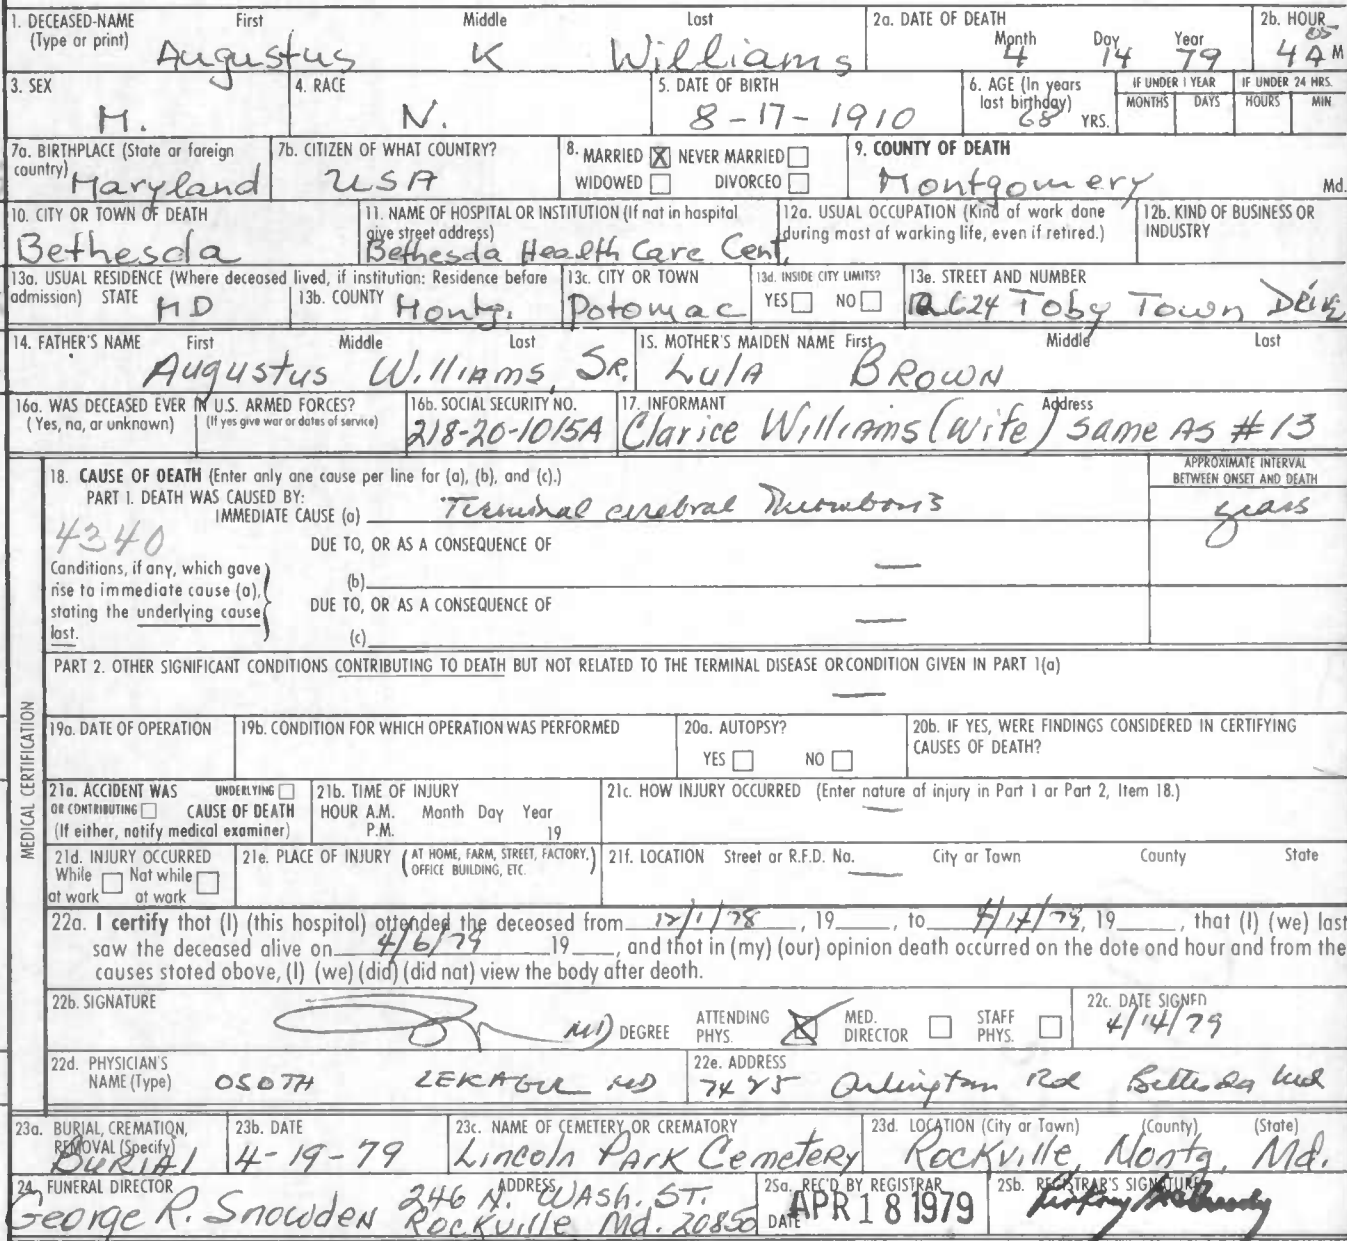 1. DECEASED-NAME First Middle Last
(Type or print) Augustus K Williams
2a. DATE OF DEATH
Month Day Year
4 14 79
2b. HOUR
4 05 A M
3. SEX
M.
4. RACE
N.
5. DATE OF BIRTH
8-17-1910
6. AGE (In years last birthday)
68 YRS.
IF UNDER 1 YEAR
MONTHS DAYS
IF UNDER 24 HRS.
HOURS MIN
7a. BIRTHPLACE (State or foreign country)
Maryland
7b. CITIZEN OF WHAT COUNTRY?
USA
8. MARRIED X NEVER MARRIED
WIDOWED DIVORCED
9. COUNTY OF DEATH
Montgomery Md.
10. CITY OR TOWN OF DEATH
Bethesda
11. NAME OF HOSPITAL OR INSTITUTION (If not in hospital give street address)
Bethesda Health Care Cent.
12a. USUAL OCCUPATION (Kind of work done during most of working life, even if retired.)
12b. KIND OF BUSINESS OR INDUSTRY
13a. USUAL RESIDENCE (Where deceased lived, if institution: Residence before admission) STATE MD
13b. COUNTY Montg.
13c. CITY OR TOWN
Potomac
13d. INSIDE CITY LIMITS?
YES NO
13e. STREET AND NUMBER
Toby Town Drive
14. FATHER'S NAME First Middle Last
Augustus Williams, SR.
15. MOTHER'S MAIDEN NAME First Middle Last
Lula BROWN
16a. WAS DECEASED EVER IN U.S. ARMED FORCES?
(Yes, no, or unknown) (If yes give war or dates of service)
16b. SOCIAL SECURITY NO.
218-20-1015A
17. INFORMANT Address
Clarice Williams (Wife) same As #13
MEDICAL CERTIFICATION
18. CAUSE OF DEATH (Enter only one cause per line for (a), (b), and (c).)
APPROXIMATE INTERVAL BETWEEN ONSET AND DEATH
PART I. DEATH WAS CAUSED BY:
IMMEDIATE CAUSE (a) Terminal cerebral Thrombosis years
4340
DUE TO, OR AS A CONSEQUENCE OF
Conditions, if any, which gave rise to immediate cause (a), stating the underlying cause last.
(b) —
DUE TO, OR AS A CONSEQUENCE OF
(c) —
PART 2. OTHER SIGNIFICANT CONDITIONS CONTRIBUTING TO DEATH BUT NOT RELATED TO THE TERMINAL DISEASE OR CONDITION GIVEN IN PART 1(a)
—
19a. DATE OF OPERATION
19b. CONDITION FOR WHICH OPERATION WAS PERFORMED
20a. AUTOPSY?
YES NO
20b. IF YES, WERE FINDINGS CONSIDERED IN CERTIFYING CAUSES OF DEATH?
21a. ACCIDENT WAS UNDERLYING
OR CONTRIBUTING CAUSE OF DEATH
(If either, notify medical examiner)
21b. TIME OF INJURY
HOUR A.M. Month Day Year
P.M. 19
21c. HOW INJURY OCCURRED (Enter nature of injury in Part 1 or Part 2, Item 18.)
—
21d. INJURY OCCURRED
While at work Not while at work
21e. PLACE OF INJURY (AT HOME, FARM, STREET, FACTORY, OFFICE BUILDING, ETC.)
21f. LOCATION Street or R.F.D. No. City or Town County State
—
22a. I certify that (I) (this hospital) attended the deceased from 12/1/78, 19 to 4/14/79, 19, that (I) (we) last
saw the deceased alive on 4/6/79 19, and that in (my) (our) opinion death occurred on the date and hour and from the
causes stated above, (I) (we) (did) (did not) view the body after death.
22b. SIGNATURE
MD DEGREE
ATTENDING PHYS. X MED. DIRECTOR STAFF PHYS.
22c. DATE SIGNED
4/14/79
22d. PHYSICIAN'S NAME (Type) OSOTH LEKAGUL MD
22e. ADDRESS
Arlington Rd Bethesda Md
23a. BURIAL, CREMATION, REMOVAL (Specify)
BURIAL
23b. DATE
4-19-79
23c. NAME OF CEMETERY OR CREMATORY
Lincoln Park Cemetery
23d. LOCATION (City or Town) (County) (State)
Rockville, Montg, Md.
24. FUNERAL DIRECTOR ADDRESS
George R. Snowden 246 N. WASH. ST.
Rockville Md. 20850
25a. REC'D BY REGISTRAR
DATE APR 18 1979
25b. REGISTRAR'S SIGNATURE